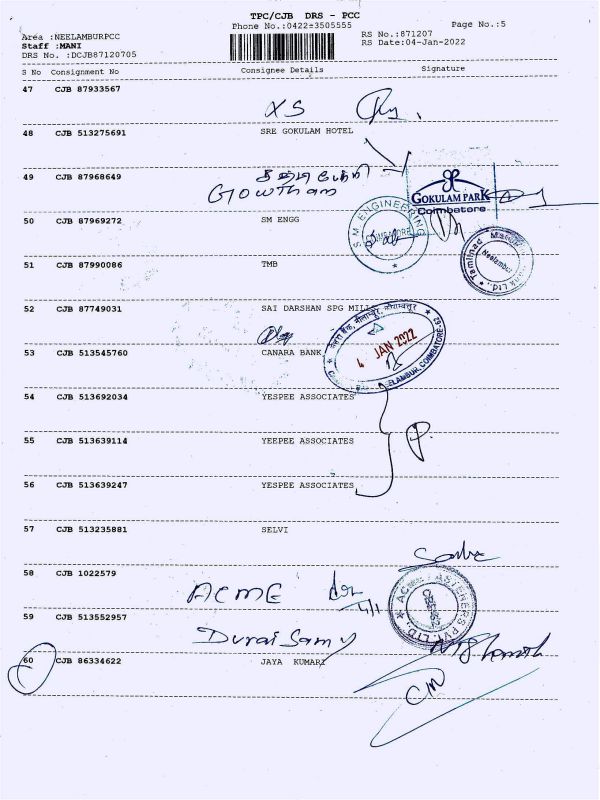 TPC/CJB DRS - PCC
Phone No.:0422±3505555
Page No.:5
Area :NEELAMBURPCC
RS No.:871207
Staff :MANI
RS Date:04-Jan-2022
DRS No. :DCJB87120705
S No Consignment No Consignee Details Signature
47 CJB 87933567
XS
48 CJB 513275691 SRE GOKULAM HOTEL
49 CJB 87968649
Gowtham
GOKULAM PARK
Coimbatore
50 CJB 87969272 SM ENGG
S M ENGINEERING
51 CJB 87990086 TMB
Tamilnad
Neelambur
52 CJB 87749031 SAI DARSHAN SPG MILL
53 CJB 513545760 CANARA BANK
4 JAN 2022
54 CJB 513692034 YESPEE ASSOCIATES
55 CJB 513639114 YEEPEE ASSOCIATES
P.
56 CJB 513639247 YESPEE ASSOCIATES
57 CJB 513235881 SELVI
58 CJB 1022579
ACME
4/1
59 CJB 513552957
Durai Samy
60 CJB 86334622 JAYA KUMARI